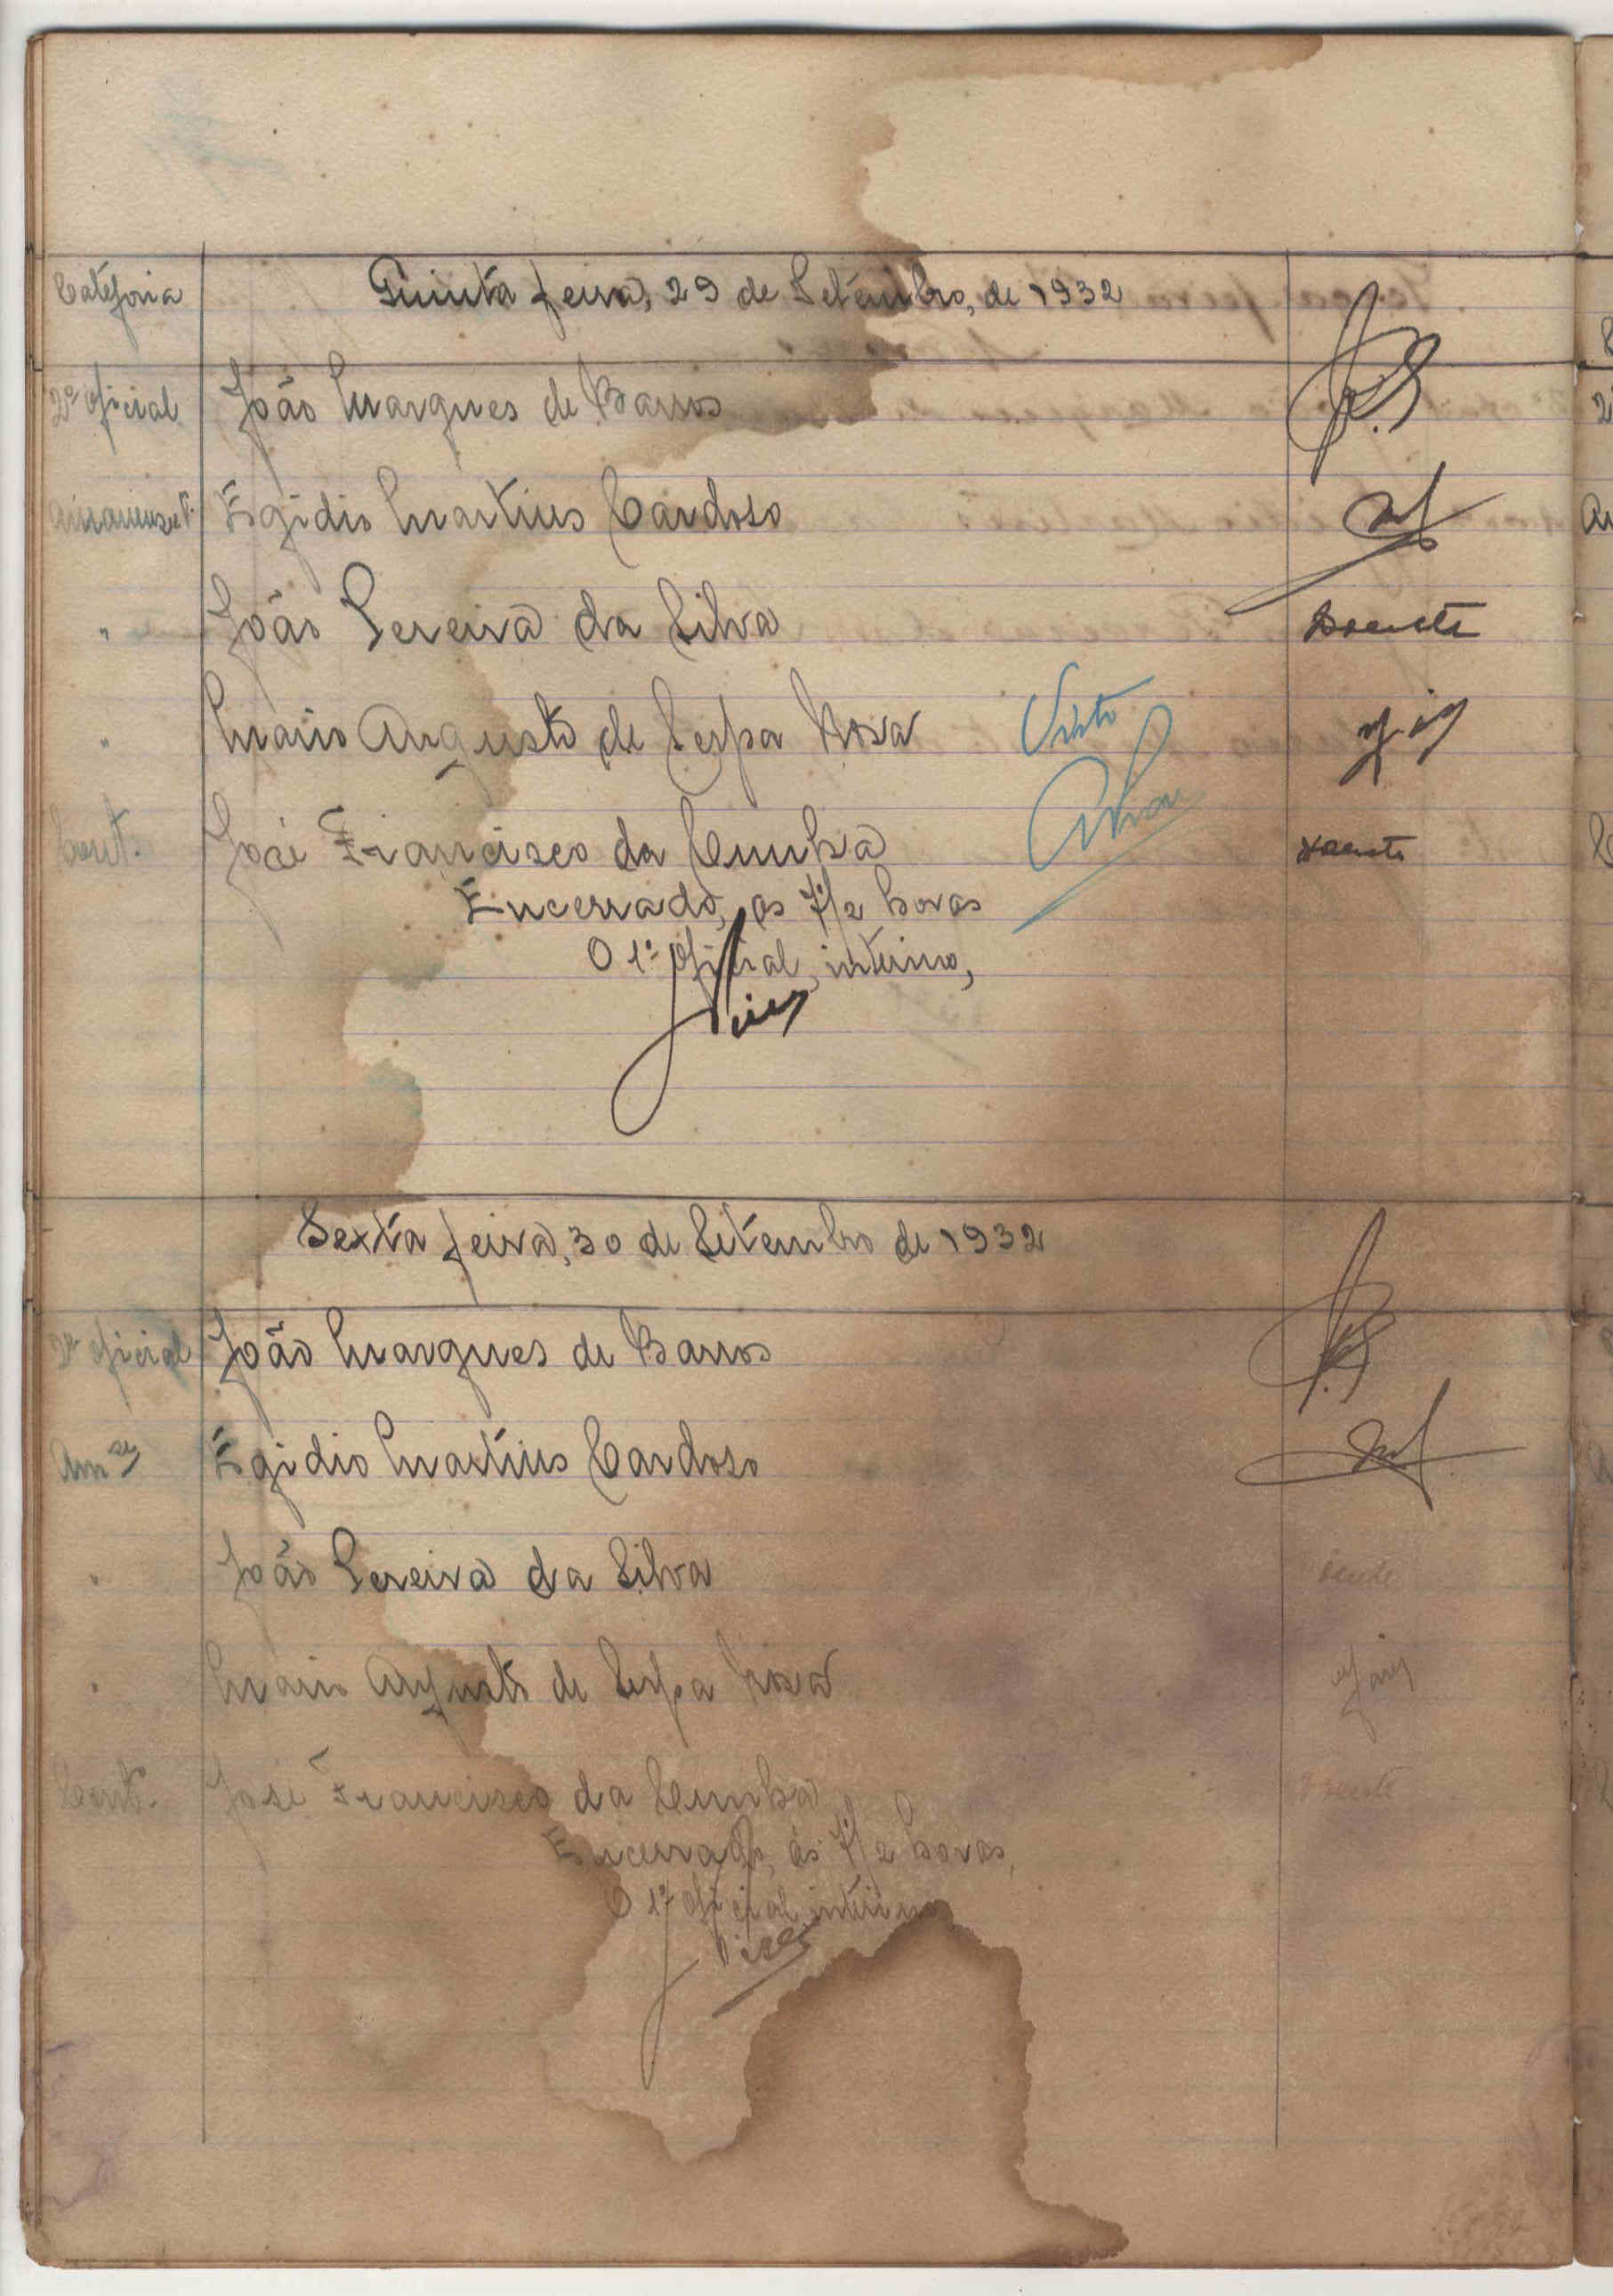 Categoria Quinta feira, 29 de Setembro, de 1932
2º oficial João Marques de Barros
Egidio Martins Cardoso
" João Pereira da Silva Doente
" Mario Augusto de Serpa Rosa Visto
Cont. José Francisco da Cunha Doente
Encerrado, ás 7 1/2 horas
O 1º oficial, interino,
Pires
Sexta feira, 30 de Setembro de 1932
2º oficial João Marques de Barros
Am.se Egidio Martins Cardoso
" João Pereira da Silva Doente
" Mario Augusto de Serpa Rosa
Cont. José Francisco da Cunha Doente
Encerrado, ás 7 1/2 horas,
O 1º oficial interino
Pires